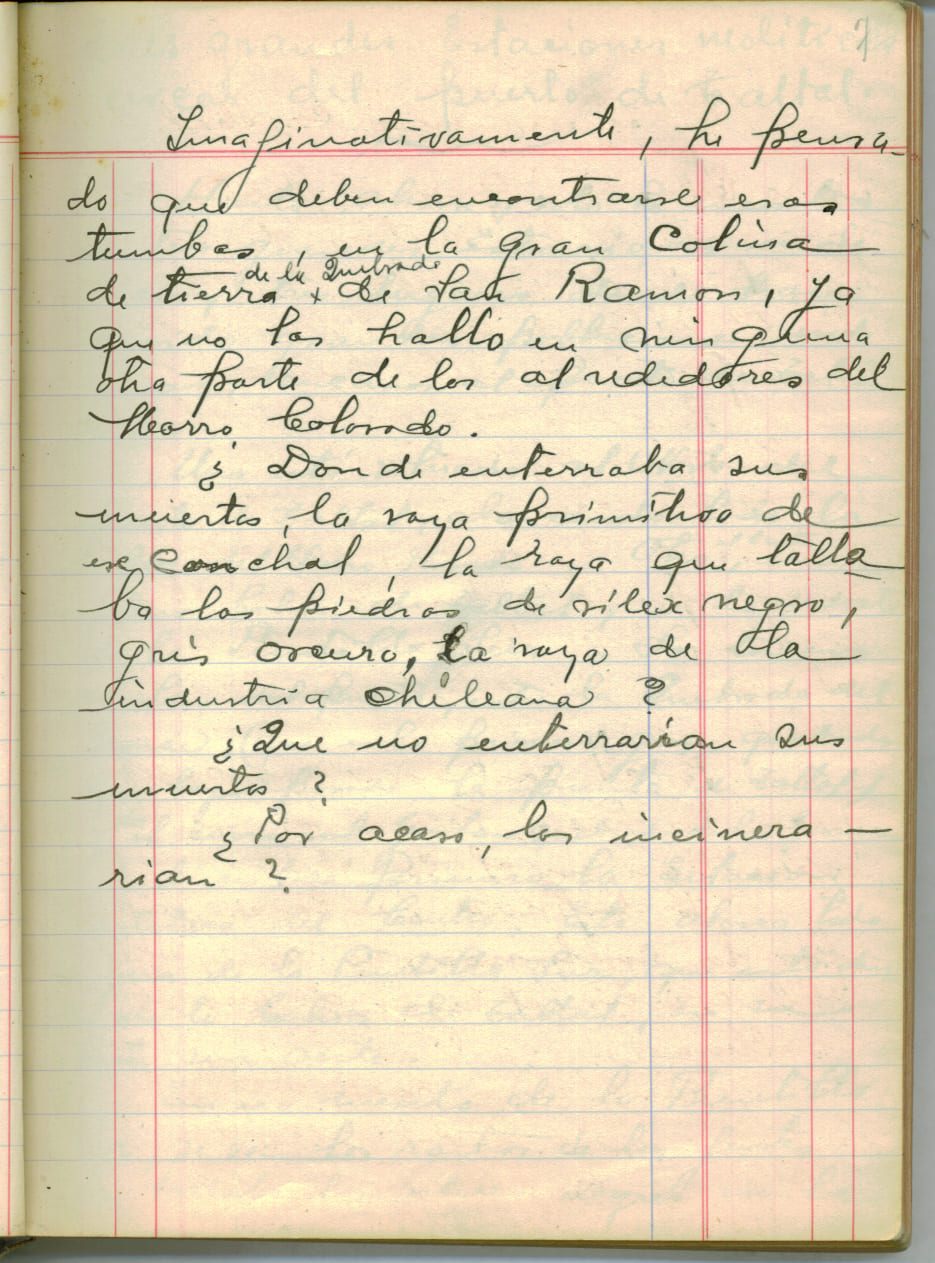 7
Imaginativamente, he pensa-
do que deben encontrarse esas
tumbas, en la gran Colina
de la Quebrada
de tierra x de San Ramon, ya
que no las hallo en ninguna
otra parte de los alrededores del
Morro Colorado.
¿Donde enterraba sus
muertos, la raza primitiva de
ese Conchal, la raza que talla
ba las piedras de silex negro,
gris oscuro, la raza de la
industria chileana?
¿Que no enterrarian sus
muertos?
¿Por acaso, los incinera-
rian?